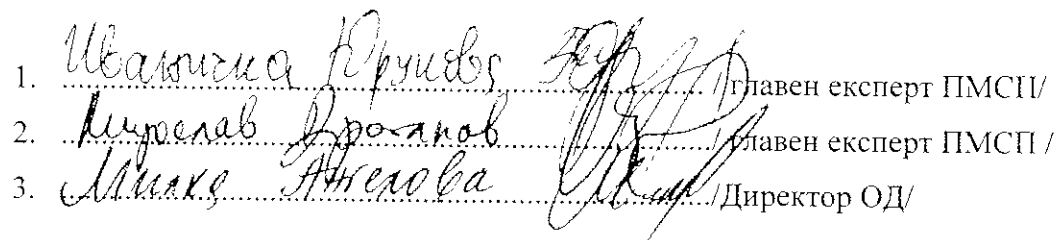 1. Иваничка ............ /главен експерт ПМСП/
2. Мирослав ............ /главен експерт ПМСП /
3. Милка Ангелова ............ /Директор ОД/